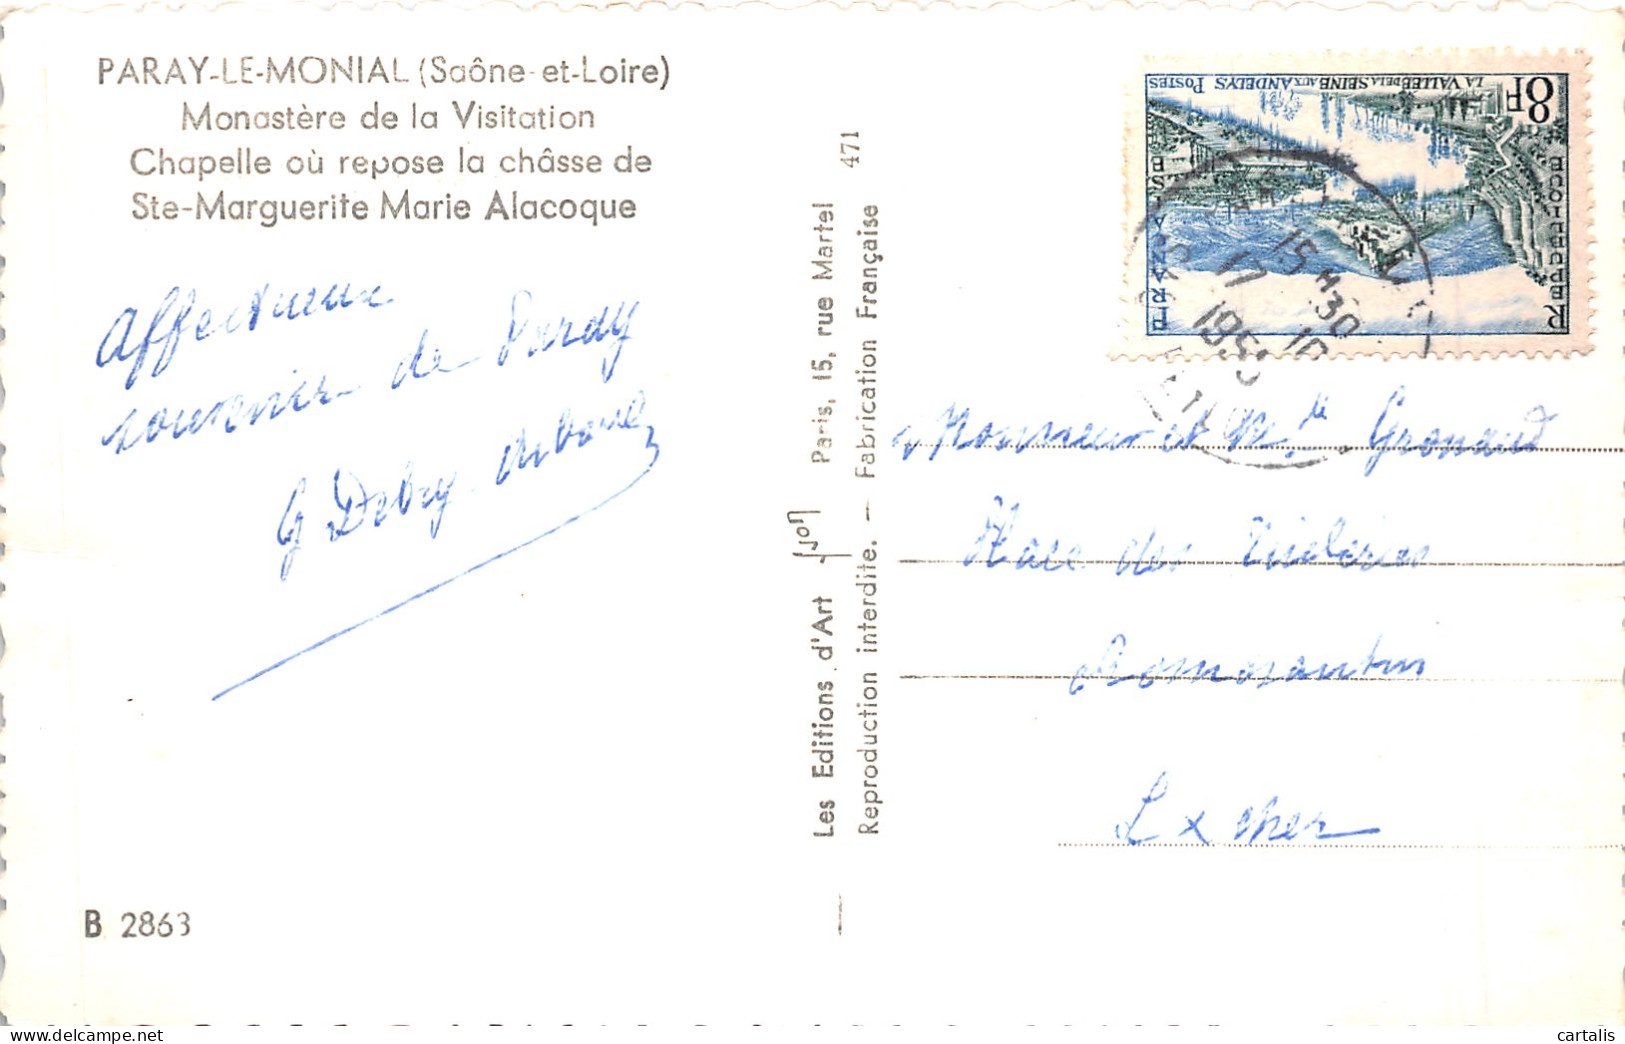 PARAY-LE-MONIAL (Saône-et-Loire)
Monastère de la Visitation
Chapelle où repose la châsse de
Ste-Marguerite Marie Alacoque
Affectueux
souvenir de Paray
G Debry
B 2863
Les Editions d'Art Yvon Paris, 15, rue Martel
Reproduction interdite. — Fabrication Française
471
8F
LA VALLEE DE LA SEINE AUX ANDELYS POSTES
REPUBLIQUE FRANÇAISE
15H30
17 10
195
Monsieur et Me
Place des
Romorantin
L x cher
cartalis